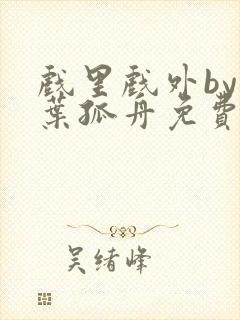 戲里戲外by
葉孤舟免費
吴绪峰